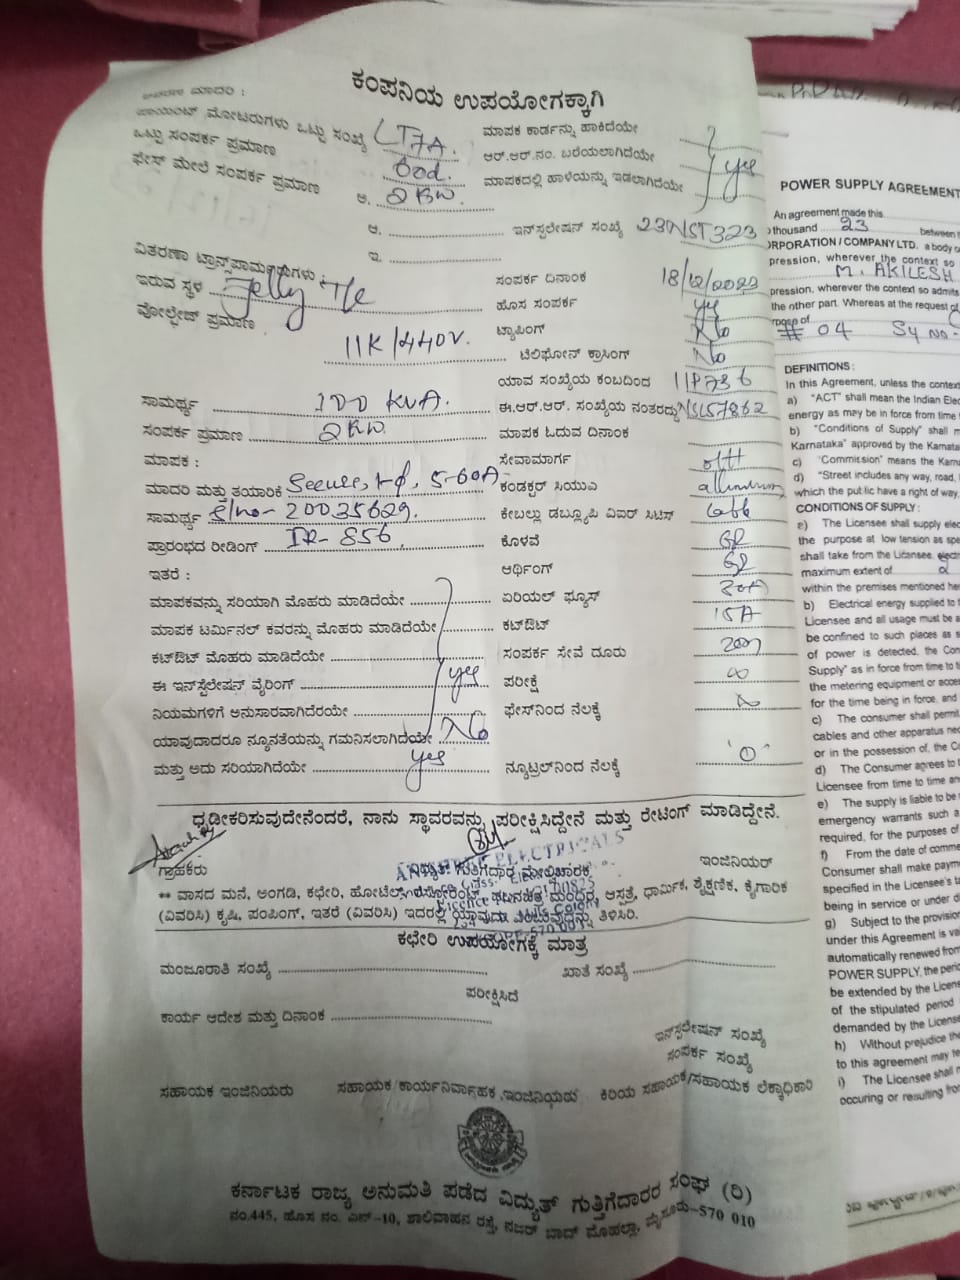 ಕಂಪನಿಯ ಉಪಯೋಗಕ್ಕಾಗಿ
ಮಾದರಿ :
ಮೋಟರುಗಳು ಒಟ್ಟು ಸಂಖ್ಯೆ LT7A. ಮಾಪಕ ಕಾರ್ಡನ್ನು ಹಾಕಿದೆಯೇ
ಒಟ್ಟು ಸಂಪರ್ಕ ಪ್ರಮಾಣ ಆರ್.ಆರ್.ನಂ. ಬರೆಯಲಾಗಿದೆಯೇ yes
ಫೇಸ್ ಮೇಲೆ ಸಂಪರ್ಕ ಪ್ರಮಾಣ ಅ. 2KW. ಮಾಪಕದಲ್ಲಿ ಹಾಳೆಯನ್ನು ಇಡಲಾಗಿದೆಯೇ
ಆ. ಇನ್‌ಸ್ಟಲೇಷನ್ ಸಂಖ್ಯೆ 23NST323
ಇ.
ವಿತರಣಾ ಟ್ರಾನ್ಸ್‌ಫಾರ್ಮರುಗಳು :
ಇರುವ ಸ್ಥಳ Jelly T/c ಸಂಪರ್ಕ ದಿನಾಂಕ 18/12/2023
ವೋಲ್ಟೇಜ್ ಪ್ರಮಾಣ ಹೊಸ ಸಂಪರ್ಕ yes
11K/440V. ಟ್ಯಾಪಿಂಗ್ No
ಟೆಲಿಫೋನ್ ಕ್ರಾಸಿಂಗ್ No
ಯಾವ ಸಂಖ್ಯೆಯ ಕಂಬದಿಂದ 11P736
ಸಾಮರ್ಥ್ಯ 100 KVA. ಈ.ಆರ್.ಆರ್. ಸಂಖ್ಯೆಯ ನಂತರದ್ದು NSL57862
ಸಂಪರ್ಕ ಪ್ರಮಾಣ 2KW. ಮಾಪಕ ಓದುವ ದಿನಾಂಕ
ಮಾಪಕ : ಸೇವಾಮಾರ್ಗ
ಮಾದರಿ ಮತ್ತು ತಯಾರಿಕೆ Secure, 1-ϕ, 5-60A ಕಂಡಕ್ಟರ್ ಸಿಯುಎ
ಸಾಮರ್ಥ್ಯ S/no- 20035629. ಕೇಬಲ್ಲು ಡಬ್ಲ್ಯೂಪಿ ವಿಐರ್ ಸಿಟಿಸ್
ಪ್ರಾರಂಭದ ರೀಡಿಂಗ್ IR- 856 ಕೊಳವೆ
ಇತರೆ : ಆರ್ಥಿಂಗ್
ಮಾಪಕವನ್ನು ಸರಿಯಾಗಿ ಮೊಹರು ಮಾಡಿದೆಯೇ ಏರಿಯಲ್ ಫ್ಯೂಸ್
ಮಾಪಕ ಟರ್ಮಿನಲ್ ಕವರನ್ನು ಮೊಹರು ಮಾಡಿದೆಯೇ ಕಟ್‌ಔಟ್ 15A
ಕಟ್‌ಔಟ್ ಮೊಹರು ಮಾಡಿದೆಯೇ ಸಂಪರ್ಕ ಸೇವೆ ದೂರು
ಈ ಇನ್‌ಸ್ಟೆಲೇಷನ್ ವೈರಿಂಗ್ yes ಪರೀಕ್ಷೆ ∞
ನಿಯಮಗಳಿಗೆ ಅನುಸಾರವಾಗಿದೆರೆಯೇ ಫೇಸ್‌ನಿಂದ ನೆಲಕ್ಕೆ
ಯಾವುದಾದರೂ ನ್ಯೂನತೆಯನ್ನು ಗಮನಿಸಲಾಗಿದೆಯೇ No
ಮತ್ತು ಅದು ಸರಿಯಾಗಿದೆಯೇ yes ನ್ಯೂಟ್ರಲ್‌ನಿಂದ ನೆಲಕ್ಕೆ '0'
ಧೃಡೀಕರಿಸುವುದೇನೆಂದರೆ, ನಾನು ಸ್ಥಾವರವನ್ನು ಪರೀಕ್ಷಿಸಿದ್ದೇನೆ ಮತ್ತು ರೇಟಿಂಗ್ ಮಾಡಿದ್ದೇನೆ.
ಗ್ರಾಹಕರು ವಿದ್ಯುತ್ ಗುತ್ತಿಗೆದಾರ ಮೇಲ್ವಿಚಾರಕ ಇಂಜಿನಿಯರ್
ELECTRICALS
** ವಾಸದ ಮನೆ, ಅಂಗಡಿ, ಕಛೇರಿ, ಹೋಟೆಲ್, ಆಸ್ಪತ್ರೆ, ಧಾರ್ಮಿಕ, ಶೈಕ್ಷಣಿಕ, ಕೈಗಾರಿಕ
(ವಿವರಿಸಿ) ಕೃಷಿ, ಪಂಪಿಂಗ್, ಇತರೆ (ವಿವರಿಸಿ) ಇದರಲ್ಲಿ ಯಾವುದು ಎಂಬುವುದನ್ನು ತಿಳಿಸಿರಿ.
ಕಛೇರಿ ಉಪಯೋಗಕ್ಕೆ ಮಾತ್ರ
ಮಂಜೂರಾತಿ ಸಂಖ್ಯೆ ಖಾತೆ ಸಂಖ್ಯೆ
ಪರೀಕ್ಷಿಸಿದೆ
ಕಾರ್ಯ ಆದೇಶ ಮತ್ತು ದಿನಾಂಕ
ಇನ್‌ಸ್ಟಲೇಷನ್ ಸಂಖ್ಯೆ
ಸಂಪರ್ಕ ಸಂಖ್ಯೆ
ಸಹಾಯಕ ಇಂಜಿನಿಯರು ಸಹಾಯಕ/ಕಾರ್ಯನಿರ್ವಾಹಕ ಇಂಜಿನಿಯರು ಕಿರಿಯ ಸಹಾಯಕ/ಸಹಾಯಕ ಲೆಕ್ಕಾಧಿಕಾರಿ
ಕರ್ನಾಟಕ ರಾಜ್ಯ ಅನುಮತಿ ಪಡೆದ ವಿದ್ಯುತ್ ಗುತ್ತಿಗೆದಾರರ ಸಂಘ (ರಿ)
ನಂ.445, ಹೊಸ ನಂ. ಎನ್-10, ಶಾಲಿವಾಹನ ರಸ್ತೆ, ನಜರ್ ಬಾದ್ ಮೊಹಲ್ಲಾ, ಮೈಸೂರು-570 010
POWER SUPPLY AGREEMENT
An agreement made this
thousand 23 between
CORPORATION / COMPANY LTD. a body
pression, wherever the context so
M. AKILESH
pression, wherever the context so admits
the other part. Whereas at the request of
# 04 Sy No-
DEFINITIONS :
In this Agreement, unless the context
a) "ACT" shall mean the Indian Elec
energy as may be in force from time
b) "Conditions of Supply" shall m
Karnataka" approved by the Karnata
c) "Commission" means the Karn
d) "Street includes any way, road,
which the public have a right of way,
CONDITIONS OF SUPPLY :
a) The Licensee shall supply elec
the purpose at low tension as spe
shall take from the Licensee,
maximum extent of
within the premises mentioned her
b) Electrical energy supplied to
Licensee and all usage must be a
be confined to such places as s
of power is detected, the Con
Supply" as in force from time to t
the metering equipment or acces
for the time being in force, and
c) The consumer shall permit
cables and other apparatus nec
or in the possession of, the Co
d) The Consumer agrees to
Licensee from time to time an
e) The supply is liable to be
emergency warrants such a
required, for the purposes of
f) From the date of comme
Consumer shall make paym
specified in the Licensee's ta
being in service or under d
g) Subject to the provision
under this Agreement is va
automatically renewed from
POWER SUPPLY, the period
be extended by the Licens
of the stipulated period
demanded by the License
h) Without prejudice the
to this agreement may te
i) The Licensee shall n
occuring or resulting from